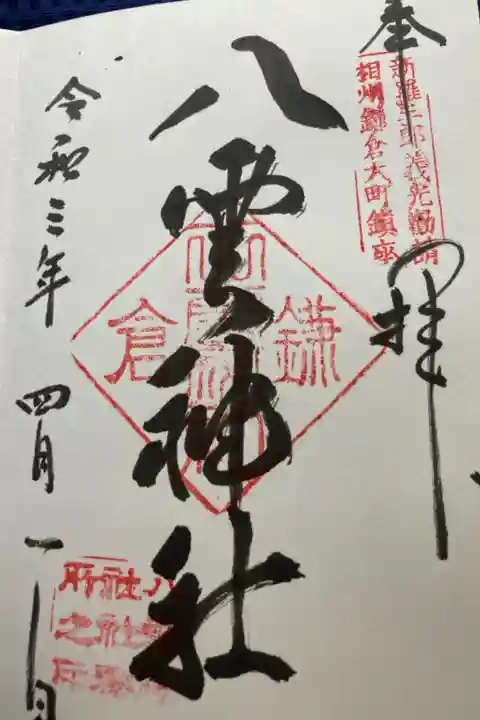 奉拝
新羅三郎義光勧請
相州鎌倉大町鎮座
八雲神社
鎌倉
令和三年 四月一日